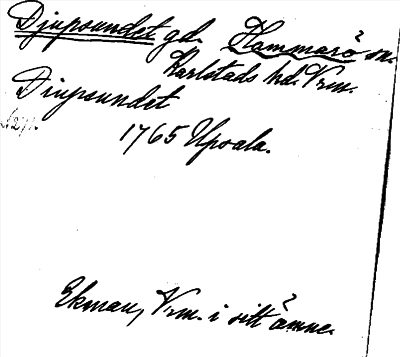 Djupsundet gd. Hammarö sn.
Karlstads hd. Vrm.
Diupsundet
1765 Upsala.
Ekman, Vrm. i sitt ämne.